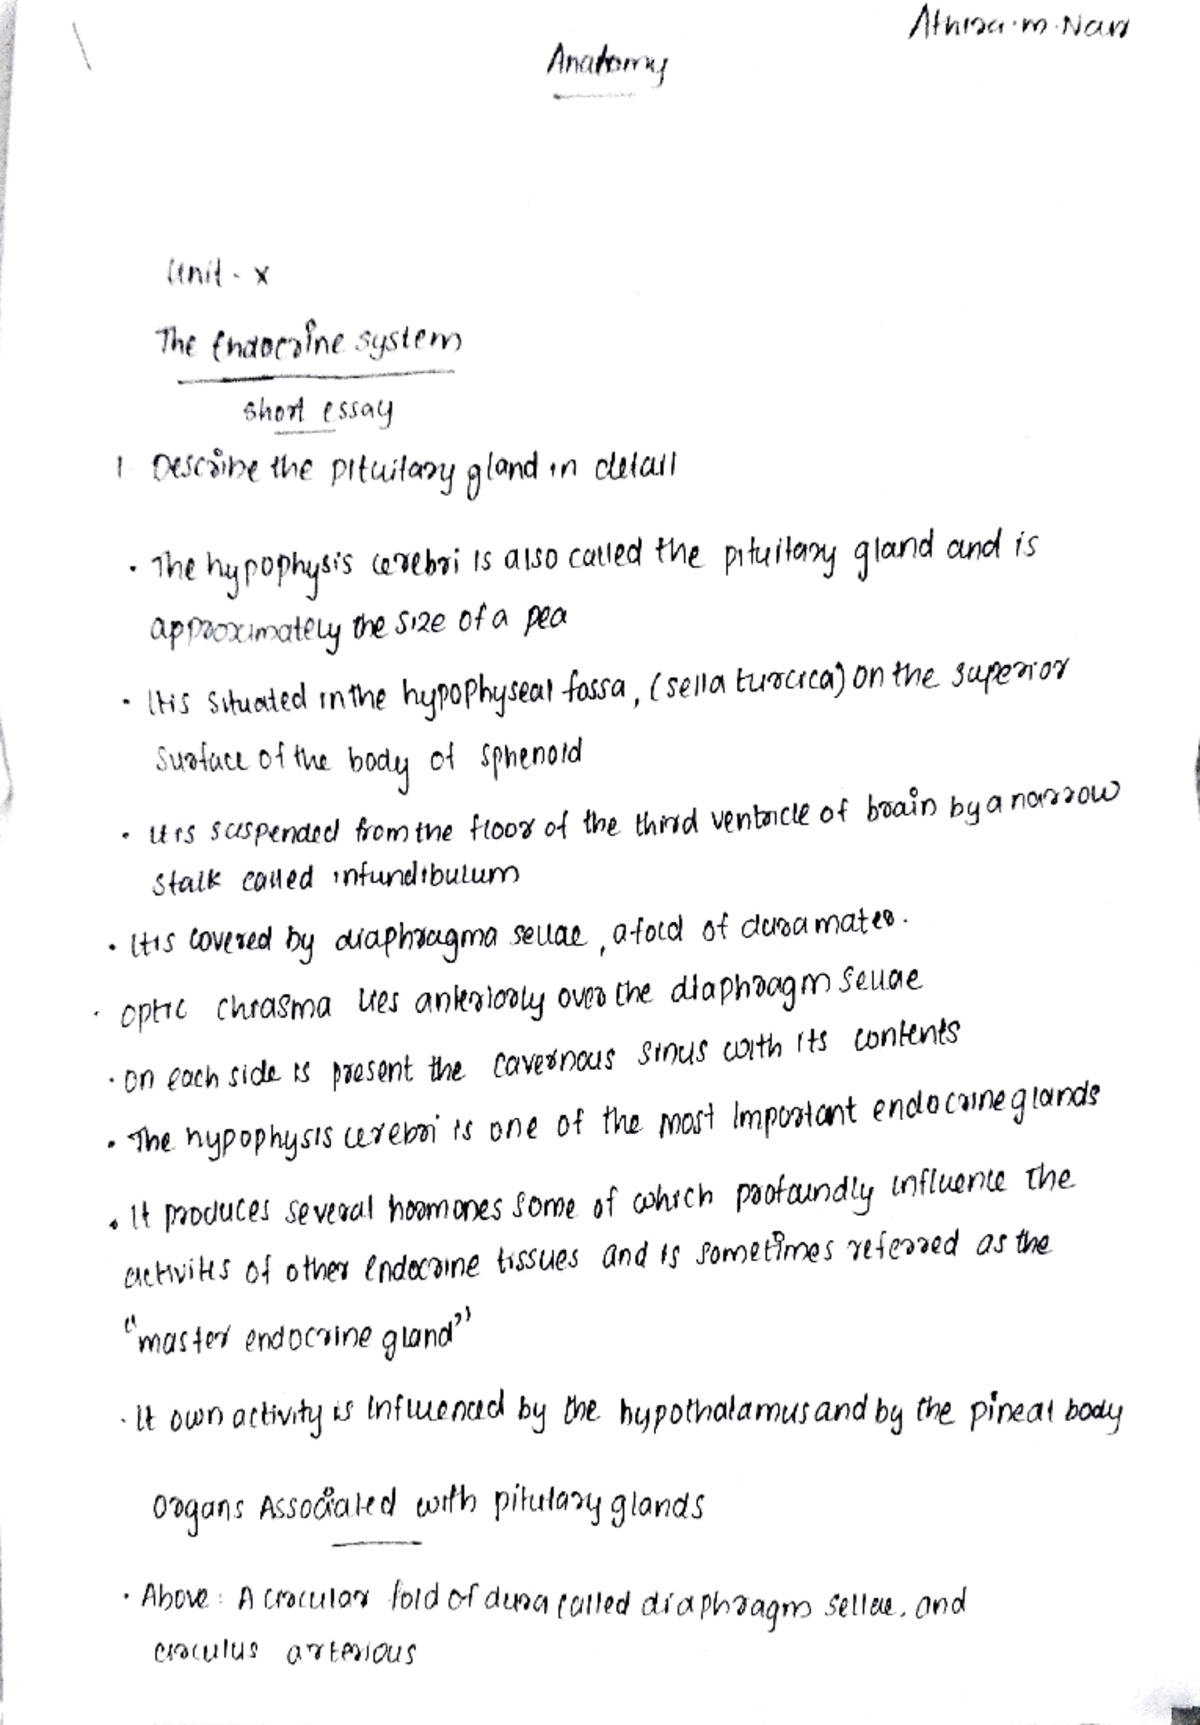 Athira.m.Nair
Anatomy
Unit - X
The Endocrine system
short essay
1 Describe the pituitary gland in detail
• The hypophysis cerebri is also called the pituitary gland and is
approximately the size of a pea
• It is situated in the hypophyseal fossa, (sella turcica) on the superior
surface of the body of sphenoid
• It is suspended from the floor of the third ventricle of brain by a narrow
stalk called infundibulum
• It is covered by diaphragma sellae, a fold of dura mater.
• Optic chiasma lies anteriorly over the diaphragm sellae
• On each side is present the cavernous sinus with its contents
• The hypophysis cerebri is one of the most important endocrine glands
• It produces several hormones some of which profoundly influence the
activities of other endocrine tissues and is sometimes referred as the
"master endocrine gland"
• It own activity is influenced by the hypothalamus and by the pineal body
Organs Associated with pitulary glands
• Above : A circular fold of dura called diaphragm sellae, and
circulus arterious